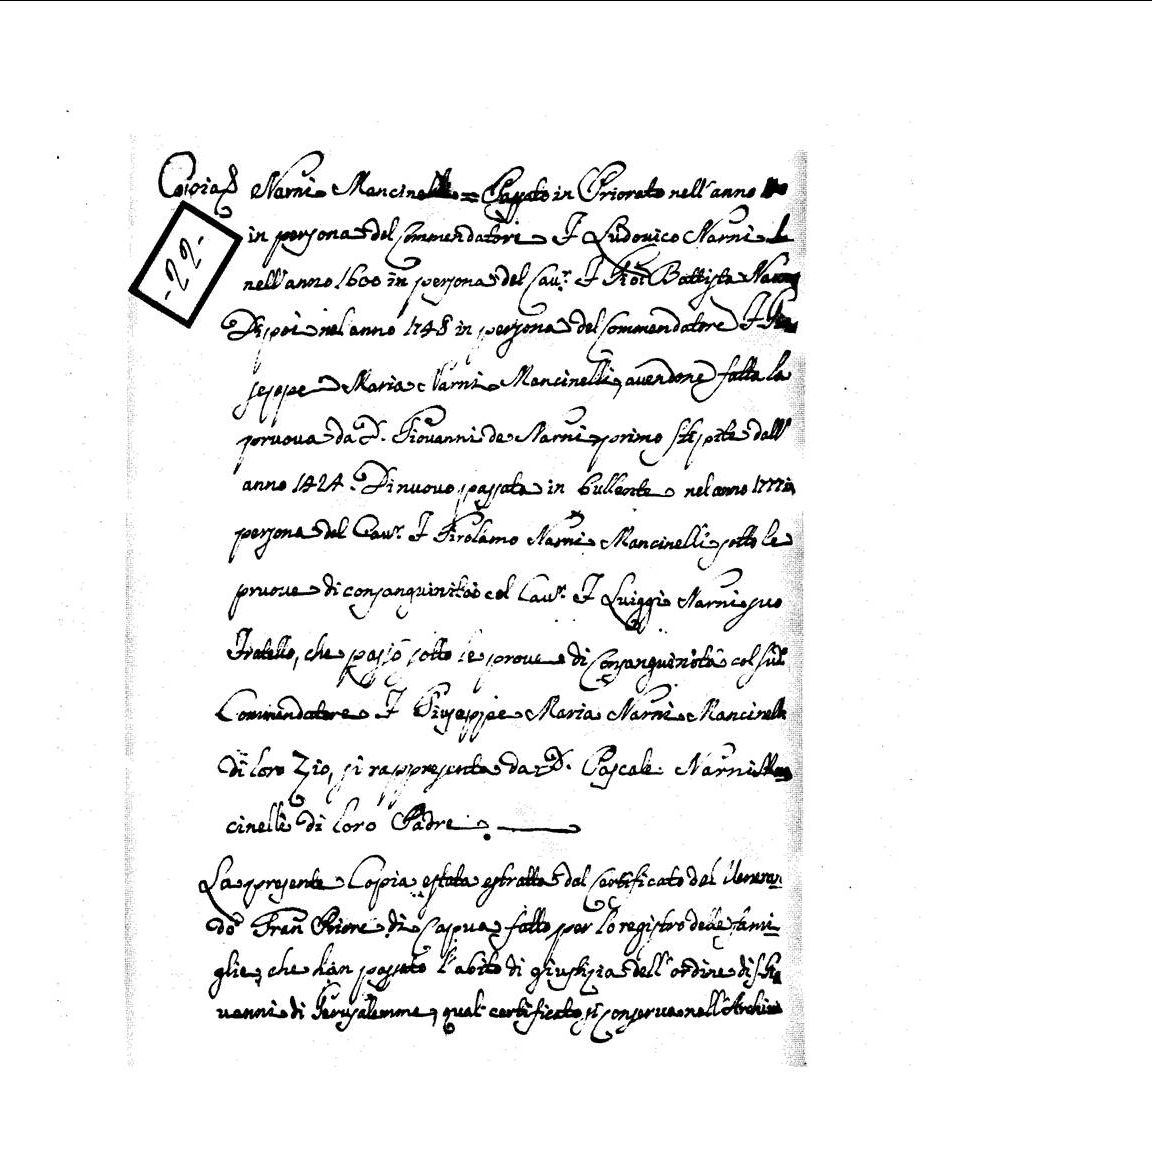 Copia Narni Mancinelli = Passato in Priorato nell'anno
-22-
in persona del Commendatore F Ludovico Narni
nell'anno 1600 in persona del Cav.r F Gio: Battista Narni
Dipoi nel anno 1748 in persona del Commendatore F Giu
seppe Maria Narni Mancinelli, avendone fatta la
pruova da D. Giovanni de Narni primo stipite dall'
anno 1424. Di nuovo passata in nel anno 1777 in
persona del Cav.r F Girolamo Narni Mancinelli sotto le
pruove di consanguinità col Cav.r F Luiggi Narni suo
Fratello, che passò sotto le prove di Consanguinità col sud.o
Commendatore F Giuseppe Maria Narni Mancinelli
di loro Zio, si rappresenta da D. Pascale Narni Man
cinelli di loro Padre.
La presente Copia è stata estratta dal Certificato del Veneran
do Gran Priore di Capua fatto per lo registro delle fami
glie, che han passato l'abito di giustizia dell'ordine di S. Gio
vanni di Gerusalemme, qual certificato si conserva nell'Archivio